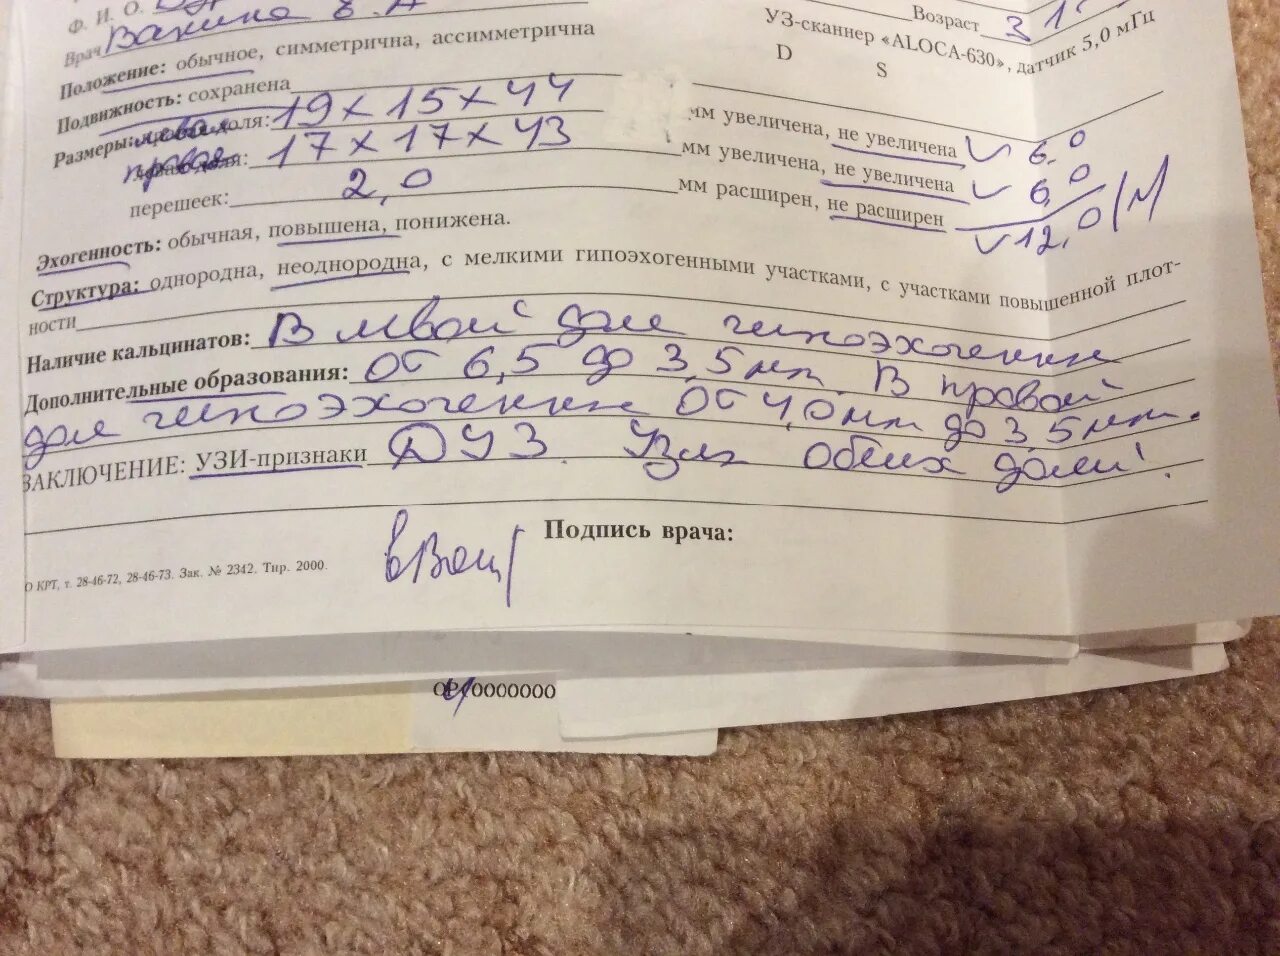 Ф. И. О.
Возраст 31
Врач Вакина Е. А
УЗ-сканнер «ALOCA-630», датчик 5,0 мГц
Положение: обычное, симметрична, ассимметрична
D S
Подвижность: сохранена
Размеры: левая доля: 19 х 15 х 44 мм увеличена, не увеличена V 6,0
правая доля: 17 х 17 х 43 мм увеличена, не увеличена V 6,0
перешеек: 2,0 мм расширен, не расширен V 12,0
Эхогенность: обычная, повышена, понижена.
Структура: однородна, неоднородна, с мелкими гипоэхогенными участками, с участками повышенной плот-
ности
Наличие кальцинатов: В левой доле гипоэхогенные
Дополнительные образования: от 6,5 до 3,5 мм. В правой
доле гипоэхогенные от 4,0 мм до 3,5 мм.
ЗАКЛЮЧЕНИЕ: УЗИ-признаки ДУЗ. Узлы обеих долей.
Подпись врача:
О КРТ, т. 28-46-72, 28-46-73. Зак. № 2342. Тир. 2000.
0000000